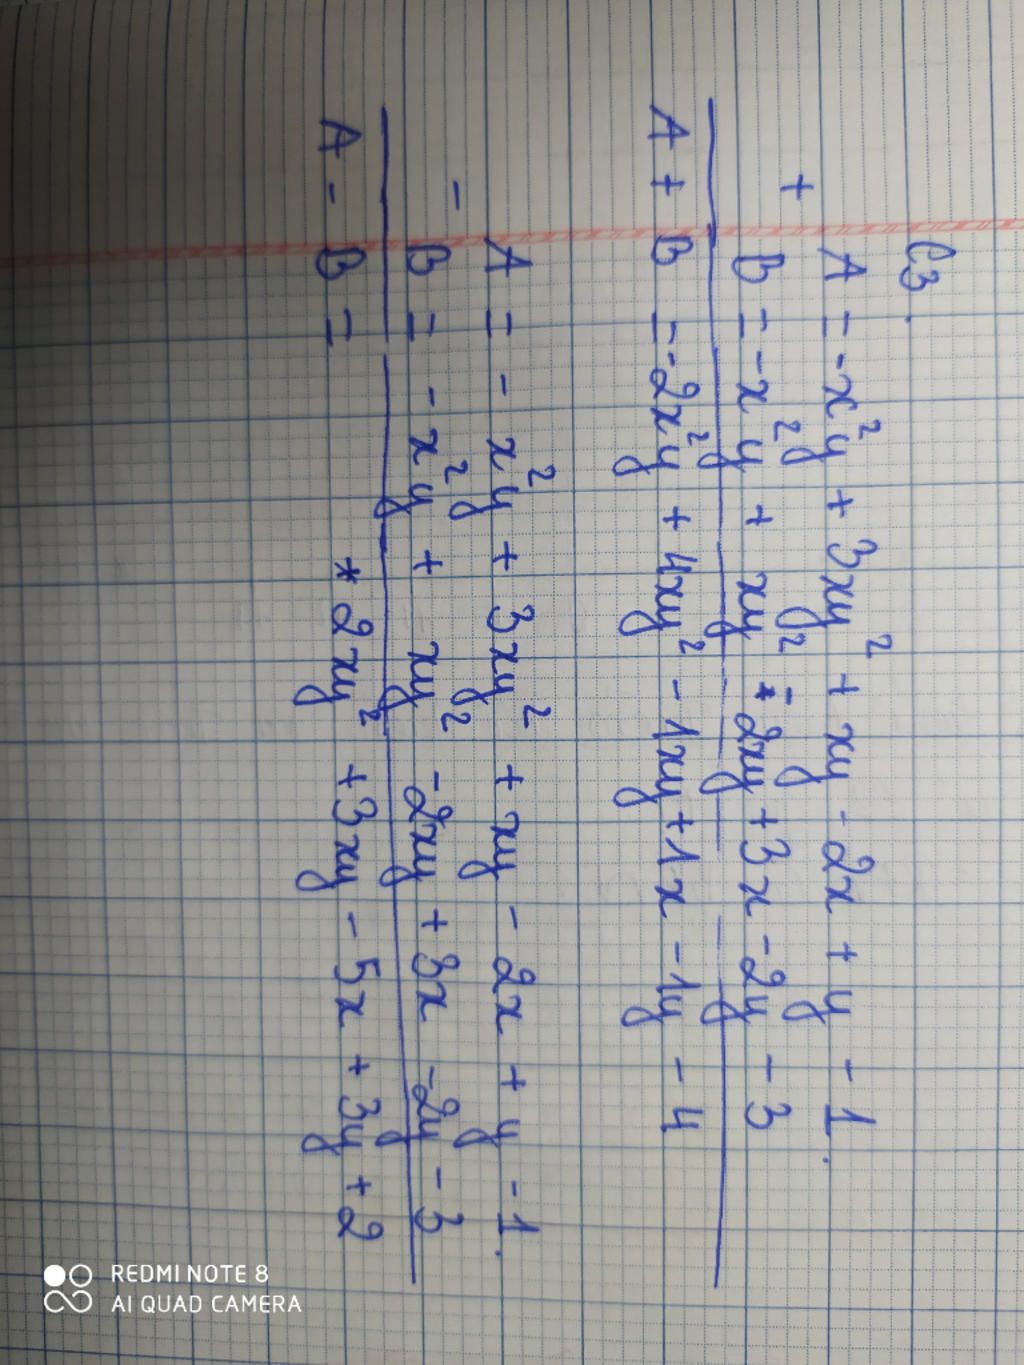 C3.
A = -x²y + 3xy² + xy - 2x + y - 1.
+
B = -x²y + xy² - 2xy + 3x - 2y - 3
A + B = -2x²y + 4xy² - 1xy + 1x - 1y - 4
A = - x²y + 3xy² + xy - 2x + y - 1.
-
B = - x²y + xy² - 2xy + 3x - 2y - 3
A - B = * 2xy² + 3xy - 5x + 3y + 2
REDMI NOTE 8
AI QUAD CAMERA